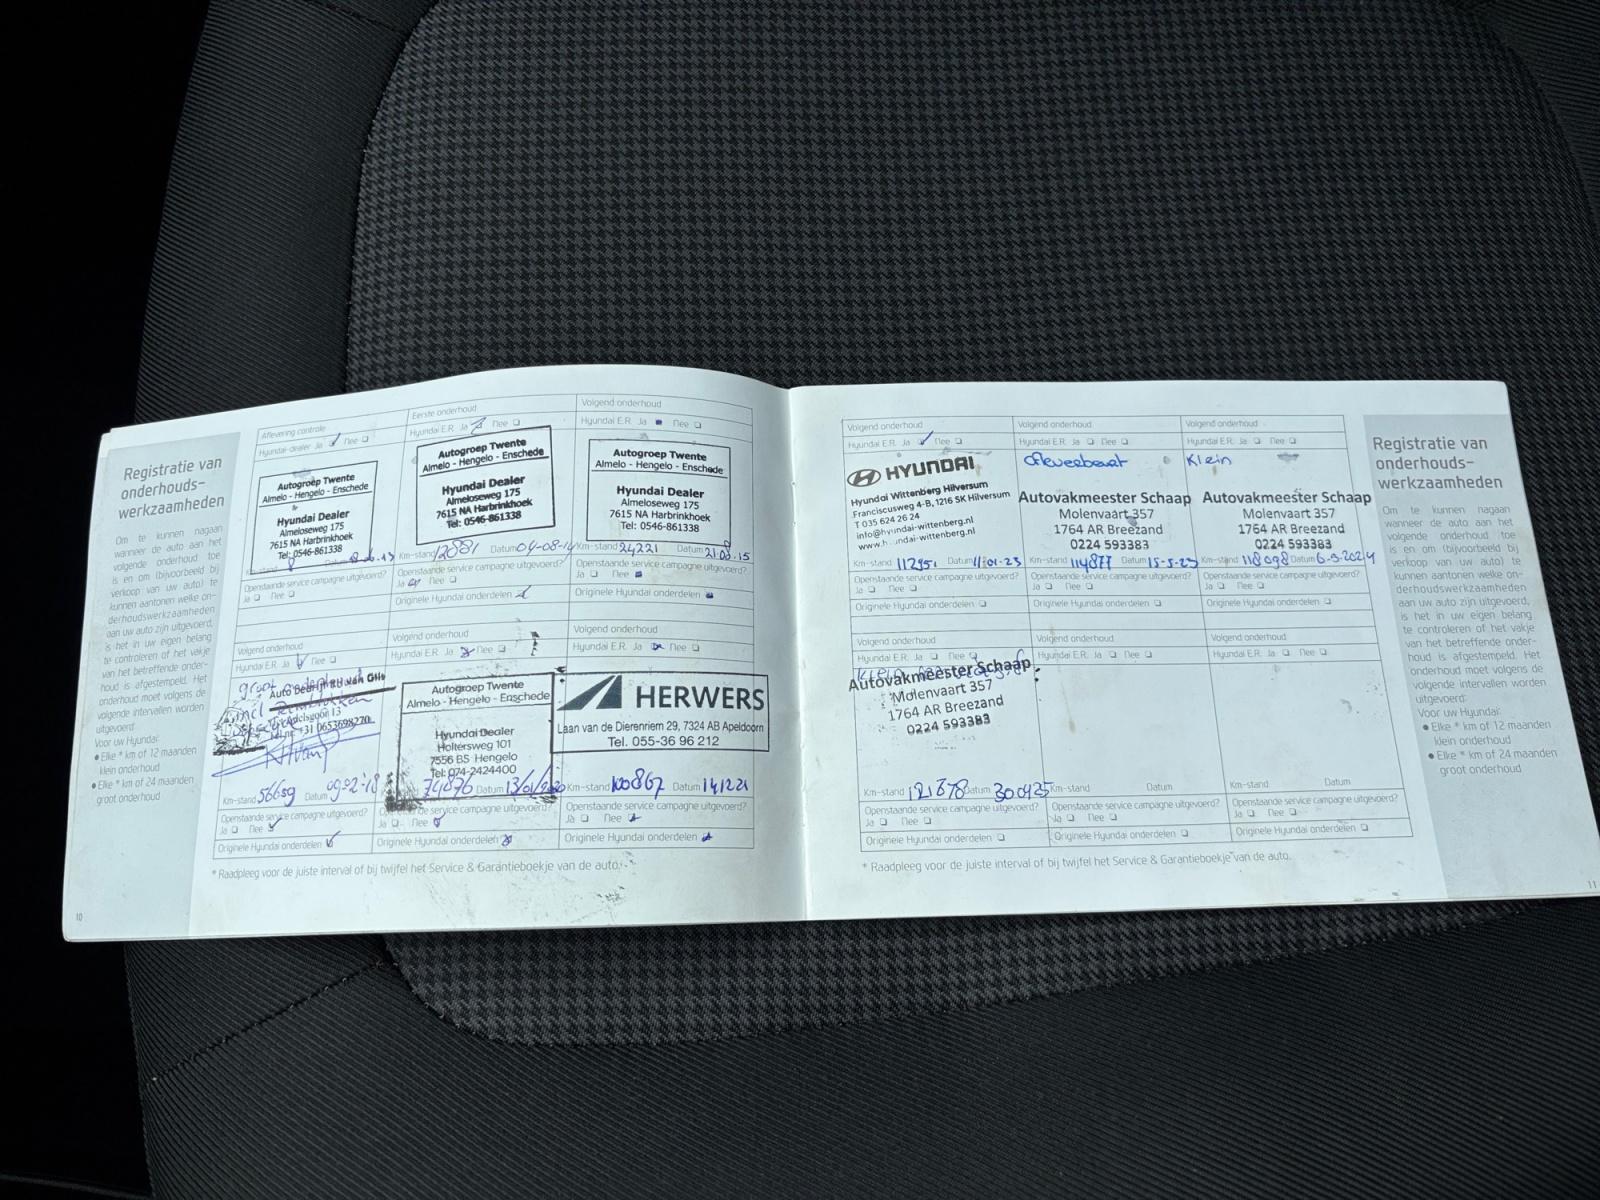 Registratie van
onderhouds-
werkzaamheden
Om te kunnen nagaan
wanneer de auto aan het
volgende onderhoud toe
is en om (bijvoorbeeld bij
verkoop van uw auto) te
kunnen aantonen welke on-
derhoudswerkzaamheden
aan uw auto zijn uitgevoerd,
is het in uw eigen belang
te controleren of het vakje
van het betreffende onder-
houd is afgestempeld. Het
onderhoud moet volgens de
volgende intervallen worden
uitgevoerd:
Voor uw Hyundai:
● Elke * km of 12 maanden
klein onderhoud
● Elke * km of 24 maanden
groot onderhoud
10
Aflevering controle
Hyundai-dealer Ja Nee
Autogroep Twente
Almelo - Hengelo - Enschede
Hyundai Dealer
Almeloseweg 175
7615 NA Harbrinkhoek
Tel: 0546-861338
Openstaande service campagne uitgevoerd?
Ja Nee
Eerste onderhoud
Hyundai E.R. Ja Nee
Autogroep Twente
Almelo - Hengelo - Enschede
Hyundai Dealer
Almeloseweg 175
7615 NA Harbrinkhoek
Tel: 0546-861338
Km-stand 12881 Datum 04-08-14
Openstaande service campagne uitgevoerd?
Ja Nee
Originele Hyundai onderdelen
Volgend onderhoud
Hyundai E.R. Ja Nee
Autogroep Twente
Almelo - Hengelo - Enschede
Hyundai Dealer
Almeloseweg 175
7615 NA Harbrinkhoek
Tel: 0546-861338
Km-stand 24221 Datum 21.08.15
Openstaande service campagne uitgevoerd?
Ja Nee
Originele Hyundai onderdelen
Volgend onderhoud
Hyundai E.R. Ja Nee
groot
incl
Km-stand 56659 Datum 09-02-18
Openstaande service campagne uitgevoerd?
Ja Nee
Originele Hyundai onderdelen
Volgend onderhoud
Hyundai E.R. Ja Nee
Autogroep Twente
Almelo - Hengelo - Enschede
Hyundai Dealer
Holtersweg 101
7556 BS Hengelo
Tel: 074-2424400
74876 Datum 13/01/2020
service campagne uitgevoerd?
Ja Nee
Originele Hyundai onderdelen
Volgend onderhoud
Hyundai E.R. Ja Nee
HERWERS
Laan van de Dierenriem 29, 7324 AB Apeldoorn
Tel. 055-36 96 212
Km-stand 100867 Datum 141221
Openstaande service campagne uitgevoerd?
Ja Nee
Originele Hyundai onderdelen
* Raadpleeg voor de juiste interval of bij twijfel het Service & Garantieboekje van de auto.
Volgend onderhoud
Hyundai E.R. Ja Nee
HYUNDAI
Hyundai Wittenberg Hilversum
Franciscusweg 4-B, 1216 SK Hilversum
T 035 624 26 24
info@hyundai-wittenberg.nl
www.hyundai-wittenberg.nl
Km-stand 112951 Datum 11-01-23
Openstaande service campagne uitgevoerd?
Ja Nee
Originele Hyundai onderdelen
Volgend onderhoud
Hyundai E.R. Ja Nee
Afleverbeurt
Autovakmeester Schaap
Molenvaart 357
1764 AR Breezand
0224 593383
Km-stand 114877 Datum 15-5-23
Openstaande service campagne uitgevoerd?
Ja Nee
Originele Hyundai onderdelen
Volgend onderhoud
Hyundai E.R. Ja Nee
Klein
Autovakmeester Schaap
Molenvaart 357
1764 AR Breezand
0224 593383
Km-stand 118098 Datum 6-3-2024
Openstaande service campagne uitgevoerd?
Ja Nee
Originele Hyundai onderdelen
Volgend onderhoud
Hyundai E.R. Ja Nee
Autovakmeester Schaap
Molenvaart 357
1764 AR Breezand
0224 593383
Km-stand 121878 Datum 300425
Openstaande service campagne uitgevoerd?
Ja Nee
Originele Hyundai onderdelen
Volgend onderhoud
Hyundai E.R. Ja Nee
Km-stand Datum
Openstaande service campagne uitgevoerd?
Ja Nee
Originele Hyundai onderdelen
Volgend onderhoud
Hyundai E.R. Ja Nee
Km-stand Datum
Openstaande service campagne uitgevoerd?
Ja Nee
Originele Hyundai onderdelen
* Raadpleeg voor de juiste interval of bij twijfel het Service & Garantieboekje van de auto.
Registratie van
onderhouds-
werkzaamheden
Om te kunnen nagaan
wanneer de auto aan het
volgende onderhoud toe
is en om (bijvoorbeeld bij
verkoop van uw auto) te
kunnen aantonen welke on-
derhoudswerkzaamheden
aan uw auto zijn uitgevoerd,
is het in uw eigen belang
te controleren of het vakje
van het betreffende onder-
houd is afgestempeld. Het
onderhoud moet volgens de
volgende intervallen worden
uitgevoerd:
Voor uw Hyundai:
● Elke * km of 12 maanden
klein onderhoud
● Elke * km of 24 maanden
groot onderhoud
11